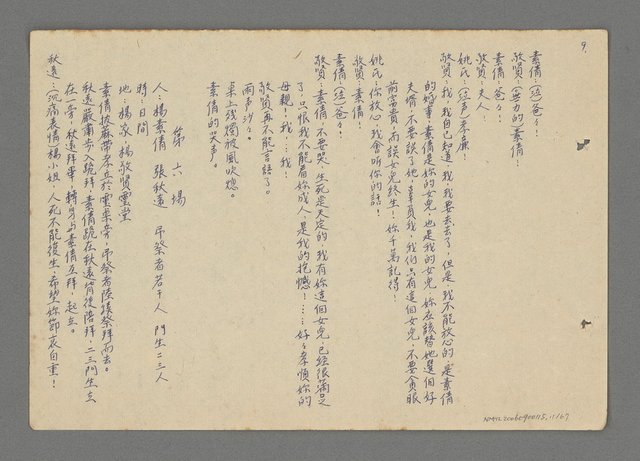 9.
素倩：(泣)爸…！
敬賢：(無力的)素倩！
素倩：爸々！
敬賢：夫人！
姚氏：(泣声)孝廉！
敬賢：我，我自己知道，我，我要去了，但是，我不能放心的，是素倩
的婚事，素倩是你的女兒，也是我的女兒，妳應該替她選個好
夫婿，不要誤了她，辜負我，我们只有這個女兒，不要貪眼
前富貴，而誤女兒終生！妳千萬記得！
姚氏：你放心，我會听你的話！
敬賢：素倩！
素倩：(泣)爸々！
敬賢：素倩，不要哭，生死是天定的，我有妳這個女兒，已經很滿足
了，只恨我不能看妳成人，是我的抱憾！……好々孝順妳的
母親！我…我！
敬賢再不能言語了。
雨声沙々。
桌上残燭被風吹熄。
素倩的哭声。
第六場
人：楊素倩 張秋遠 弔祭者若干人 門生二三人
時：日間
地：楊家，楊敬賢靈堂
素倩披麻帶孝立於靈桌旁，弔祭者陸續祭拜而去。
秋遠嚴肅步入跪拜，素倩跪在秋遠背後陪拜，二三門生立
在一旁，秋遠拜畢，轉身与素倩互拜，起立。
秋遠：(沉痛表情)楊小姐，人死不能復生，希望妳節哀自重！